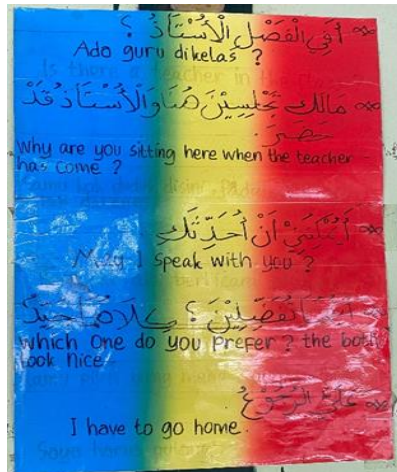 أَفِي الْفَصْلِ الْأُسْتَاذُ ؟
Ada guru dikelas ?
مَالَكِ تَجْلِسِيْنَ هُنَا وَالْأُسْتَاذُ قَدْ
حضر.
Why are you sitting here when the teacher
has come ?
أَيُمْكِنُنِيْ أَنْ أُحَدِّثَكِ
May I speak with you ?
تُفَضِّلِيْنَ ؟ كِلَاهُمَا جَيِّدٌ
Which One do you Prefer ? the both
look nice
عَلَيَّ الرُّجُوْعُ.
I have to go home.